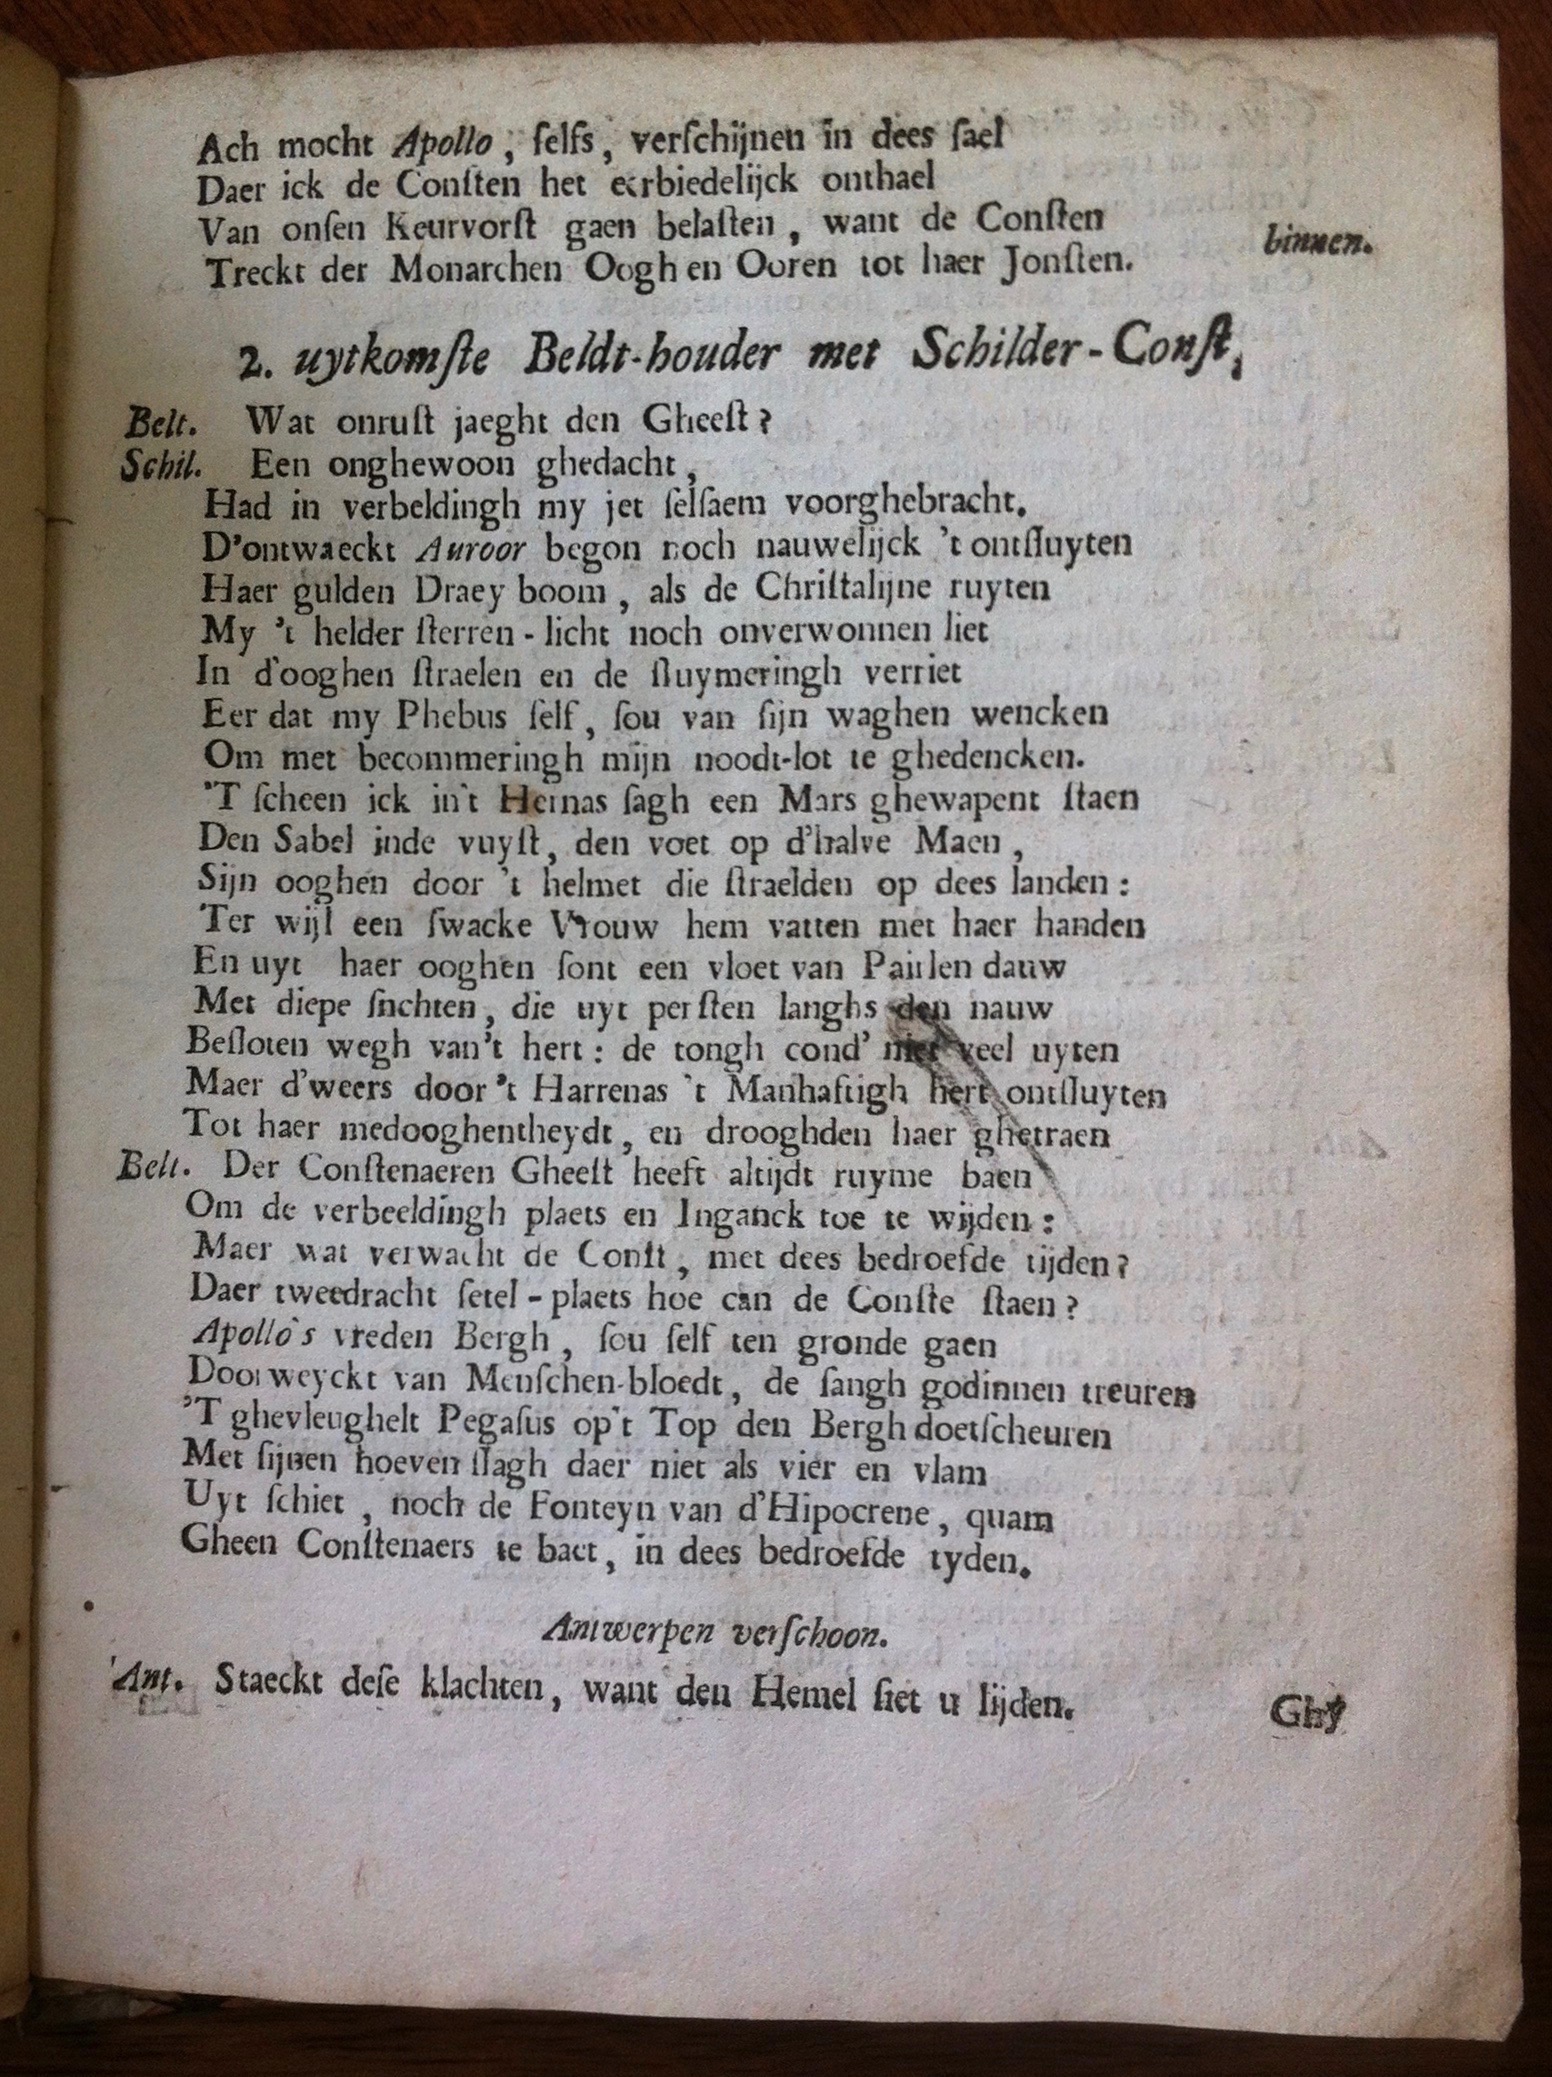 Ach mocht Apollo, ſelfs, verſchijnen in dees ſael
Daer ick de Conſten het eerbiedelijck onthael
Van onſen Keurvorſt gaen belaſten, want de Conſten
Treckt der Monarchen Oogh en Ooren tot haer Jonſten. binnen.
2. uytkomſte Beldt-houder met Schilder-Conſt,
Belt. Wat onruſt jaeght den Gheeſt?
Schil. Een onghewoon ghedacht,
Had in verbeldingh my jet ſelſaem voorghebracht.
D'ontwaeckt Auroor begon noch nauwelijck 't ontſluyten
Haer gulden Draey boom, als de Chriſtalijne ruyten
My 't helder ſterren-licht noch onverwonnen liet
In d'ooghen ſtraelen en de ſluymeringh verriet
Eer dat my Phebus ſelf, ſou van ſijn waghen wencken
Om met becommeringh mijn noodt-lot te ghedencken.
'T ſcheen ick in't Hernas ſagh een Mars ghewapent ſtaen
Den Sabel inde vuyſt, den voet op d'halve Maen,
Sijn ooghen door 't helmet die ſtraelden op dees landen:
Ter wijl een ſwacke Vrouw hem vatten met haer handen
En uyt haer ooghen ſont een vloet van Paiılen dauw
Met diepe ſuchten, die uyt perſten langhs den nauw
Beſloten wegh van't hert: de tongh cond' niet veel uyten
Maer d'weers door 't Harrenas 't Manhaftigh hert ontſluyten
Tot haer medooghentheydt, en drooghden haer ghetraen
Belt. Der Conſtenaeren Gheeſt heeft altijdt ruyme baen
Om de verbeeldingh plaets en Inganck toe te wijden:
Maer wat verwacht de Conſt, met dees bedroefde tijden?
Daer tweedracht ſetel-plaets hoe can de Conſte ſtaen?
Apollo's vreden Bergh, ſou ſelf ten gronde gaen
Doorweyckt van Menſchen-bloedt, de ſangh godinnen treuren
'T ghevleughelt Pegaſus op't Top den Bergh doetſcheuren
Met ſijnen hoeven ſlagh daer niet als vier en vlam
Uyt ſchiet, noch de Fonteyn van d'Hipocrene, quam
Gheen Conſtenaers te baet, in dees bedroefde tyden.
Antwerpen verſchoon.
Ant. Staeckt deſe klachten, want den Hemel ſiet u lijden.
Ghy